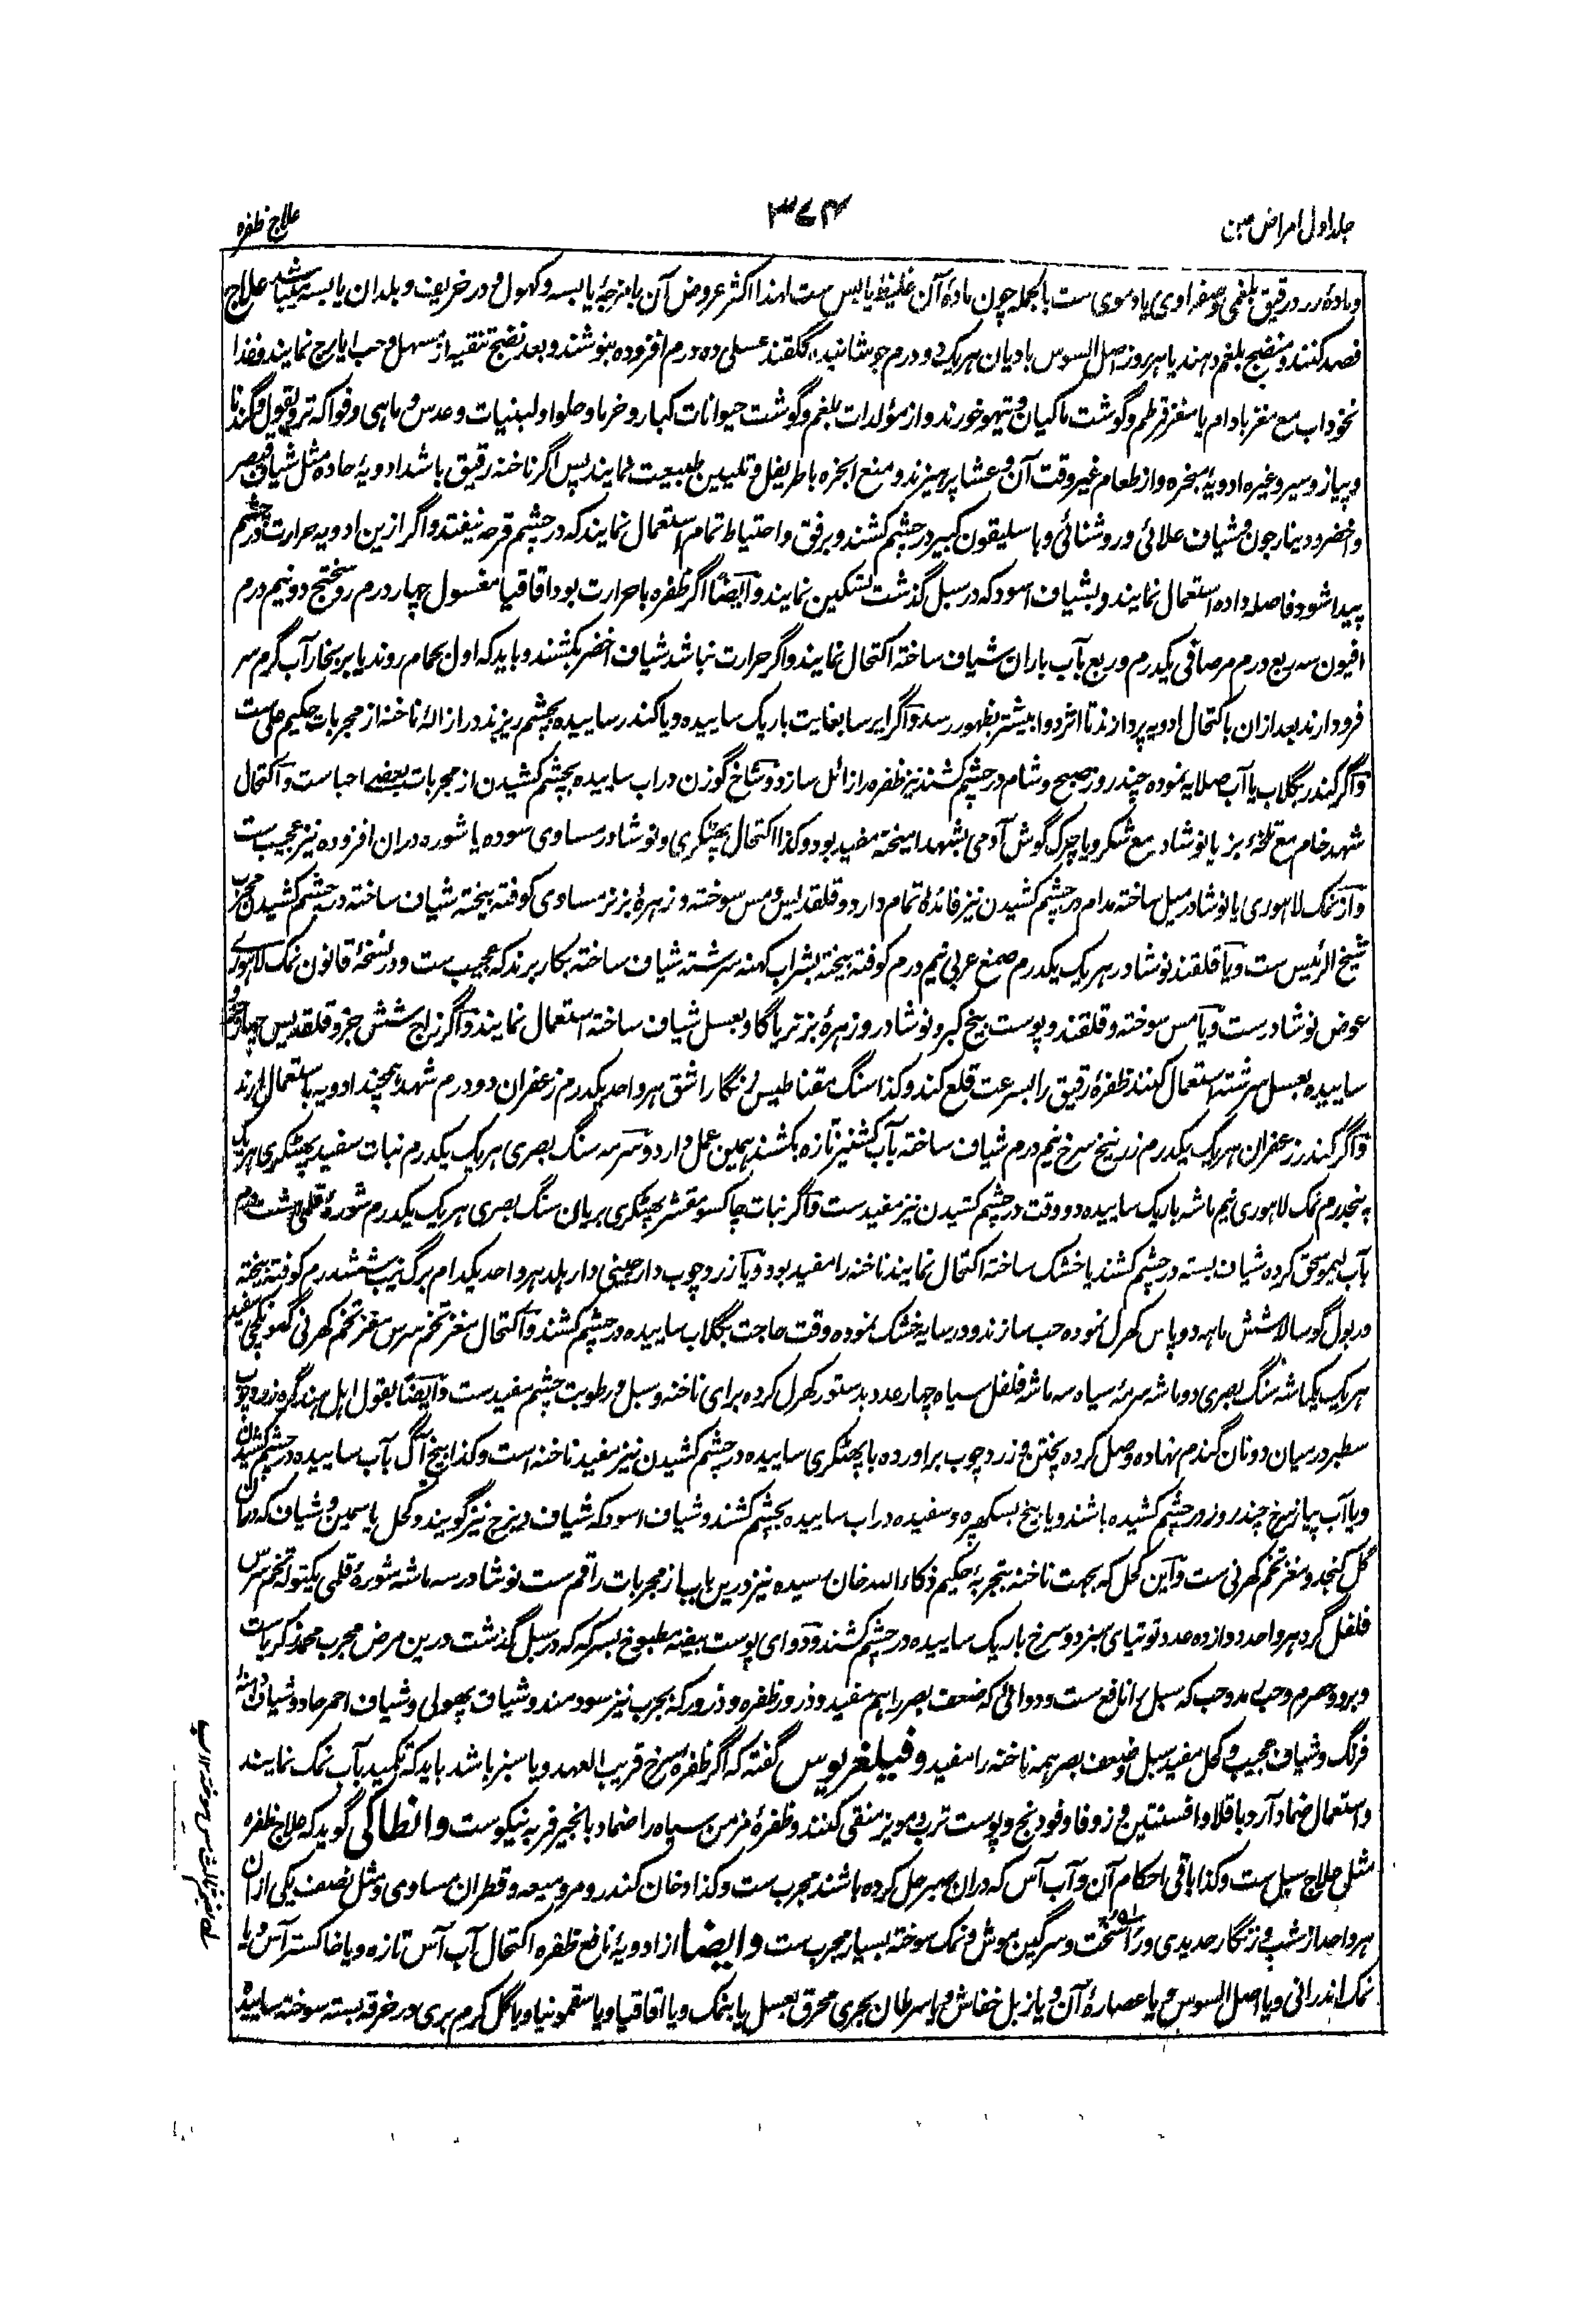 جلد اول امراض عین
۳۷۴
علاج ظفره
و ماده در رقیق بلغمی و صفراوی یا دموی ست بالجمله چون مادهٔ آن غلیظ یابس ست لهذا اکثر عروض آن بامزجهٔ یابسه و کهول و در خریف و بلدان یابسه میباشد علاج
فصد کنند و منضج بلغم دهند یا هر روز اصل السوس بادیان هر یک دو درم جوشانیده گلقند عسلی ده درم افزوده بنوشند و بعد نضج تنقیه از مسهل و حب ایارج نمایند و غذا
نخوداب مع مغز بادام یا مغز قرطم و گوشت ماکیان و تیهو خورند و از مولدات بلغم و گوشت حیوانات کبار و خرما و حلوا و لبنیات و عدس و ماهی و فواکه تر و بقول و گندنا
و پیاز و سیر و غیره ادویهٔ مبخره و از طعام غیر وقت آن و عشا پرهیزند و منع ابخره باطریفل و تلیین طبیعت نمایند پس اگر ناخنه رقیق باشد ادویهٔ حاده مثل شیاف قیصر
و اخضر و دینارجون و شیاف علائی و روشنائی و باسلیقون کبیر در چشم کشند و برفق و احتیاط تمام استعمال نمایند که در چشم قرحه نیفتد و اگر ازین ادویه حرارت در چشم
پیدا شود فاصله داده استعمال نمایند و بشیاف اسود که در سبل گذشت تسکین نمایند و ایضاً اگر ظفره با حرارت بود اقاقیا مغسول چهار درم روسختج دو نیم درم
افیون سه ربع درم مر صافی یکدرم و ربع بآب باران شیاف ساخته اکتحال نمایند و اگر حرارت نباشد شیاف اخضر بکشند و باید که اول بحمام روند یا بر بخار آب گرم سر
فرو دارند بعد ازان باکتحال ادویه پردازند تا اثر دوا بیشتر بظهور رسد و اگر ایرسا بغایت باریک ساییده و یا کندر ساییده بچشم ریزند در ازالهٔ ناخنه از مجربات حکیم علی ست
و اگر کندر بگلاب یا آب صلایه نموده چند روز صبح و شام در چشم کشند نیز ظفره را زائل سازد و شاخ گوزن در آب ساییده بچشم کشیدن از مجربات بعضے احباست و اکتحال
شهد خام مع تلخهٔ بز یا نوشادر مع شکر و یا چرک گوش آدمی بشهد آمیخته مفید بود و کذا اکتحال پھٹکری و نوشادر مساوی سوده یا شوره دران افزوده نیز عجیب ست
و از نمک لاهوری یا نوشادر میل ساخته مدام در چشم کشیدن نیز فائدهٔ تمام دارد و قلقدیس و مس سوخته و زهرهٔ بز نر مساوی کوفته بیخته شیاف ساخته در چشم کشیدن مجرب
شیخ الرئیس ست و یا قلقند نوشادر هر یک یکدرم صمغ عربی نیم درم کوفته بیخته بشراب کهنه سرشته شیاف ساخته بکار برند که عجیب ست و در نسخهٔ قانون نمک لاهوری
عوض نوشادر ست و یا مس سوخته و قلقند و پوست بیخ کبر و نوشادر و زهرهٔ بز نر یا گاو بعسل شیاف ساخته استعمال نمایند و اگر زاج شش جزو قلقدیس چهار جزو
ساییده بعسل سرشته استعمال کنند ظفرهٔ رقیق را بسرعت قلع کند و کذا سنگ مقناطیس زنگار اشق هر واحد یکدرم زعفران دو درم شهد همچند ادویه باستعمال آرند
و اگر کندر زعفران هر یک یکدرم زرنیخ سرخ نیم درم شیاف ساخته بآب کشنیز تازه بکشند همین عمل دارد و سرمه سنگ بصری هر یک یکدرم نبات سفید پھٹکری هر یک
پنجدرم نمک لاهوری نیم ماشه باریک ساییده دو وقت در چشم کشیدن نیز مفید ست و اگر نبات چاکسو مقشر پھٹکری بریان سنگ بصری هر یک یکدرم شورهٔ قلمی هشت درم
بآب لیمو سحق کرده شیاف بسته در چشم کشند یا خشک ساخته اکتحال نمایند ناخنه را مفید بود و یا زردچوب دارچینی دار هلد هر واحد یکدام برگ نیب ششدرم کوفته بیخته
در بول گوساله شش ماهه دو پاس کھرل نموده حب سازند و در سایه خشک نموده وقت حاجت بگلاب ساییده در چشم کشند و اکتحال مغز تخم سرس مغز تخم کھرنی گھونگچی سفید
هر یک یکماشه سنگ بصری دو ماشه سرمهٔ سیاه سه ماشه فلفل سیاه چهار عدد بدستور کھرل کرده برای ناخنه و سبل و رطوبت چشم مفید ست و ایضاً بقول اهل هند گره زردچوب
سطبر در میان دو نان گندم نهاده وصل کرده پختن و زردچوب برآورده با پھٹکری ساییده در چشم کشیدن نیز مفید ناخنه است و کذا بیخ آگ بآب ساییده در چشم کشیدن
و یا آب پیاز سرخ چند روز در چشم کشیده باشند و یا بیخ بسکھپره سفیده در آب ساییده بچشم کشند و شیاف اسود که شیاف دیزج نیز گویند و کحل یاسمین و شیاف که در آن
گل کنجد و مغز تخم کھرنی ست و این کحل که بجهت ناخنه بتجربهٔ حکیم ذکاء الله خان رسیده نیز درین باب از مجربات راقم ست نوشادر سه ماشه شورهٔ قلمی یکتوله تخم سرس
فلفل گرد هر واحد دوازده عدد توتیای سبز دو سرخ باریک ساییده در چشم کشند و دوای پوست بیضه مطبوخ بسرکه که در سبل گذشت درین مرض مجرب محمد زکریاست
و برود حصرم و حب مدوحب که سبل را نافع ست و دوائی که ضعف بصر را هم مفید و ذرور ظفره و ذرور که بجرب نیز سودمند و شیاف پھولی و شیاف احمر حاد و شیاف
فرنگ و شیاف عجیب و کحل مفید سبل و ضعف بصر همه ناخنه را مفید و فیلغریوس گفته که اگر ظفره سرخ قریب العهد و یا سبز باشد باید که تکمید بآب نمک نمایند
و استعمال ضماد آرد باقلا و افسنتین و زوفا و فودنج و پوست ترب و مویز منقی کنند و ظفرهٔ مزمن سیاه را ضماد بانجیر فربه نیکوست و انطاکی گوید که علاج ظفره
مثل علاج سبل ست و کذا باقی احکام آن و آب آس که دران صبر حل کرده باشند مجرب ست و کذا دخان کندر و مر و میعه و قطران مساوی و مثل نصف یکی ازان
هر واحد از شب و زنگار حدیدی و راسخت و سرگین موش و نمک سوخته بسیار مجرب ست و ایضا از ادویهٔ نافع ظفره اکتحال آب آس تازه و یا خاکستر آس و یا
نمک اندرانی و یا اصل السوس و یا عصارهٔ آن و یا زبل خفاش و یا سرطان بحری محرق بعسل یا بنمک و یا اقاقیا و یا سقمونیا و یا گل کرم بری در خرقه بسته سوخته ساییده